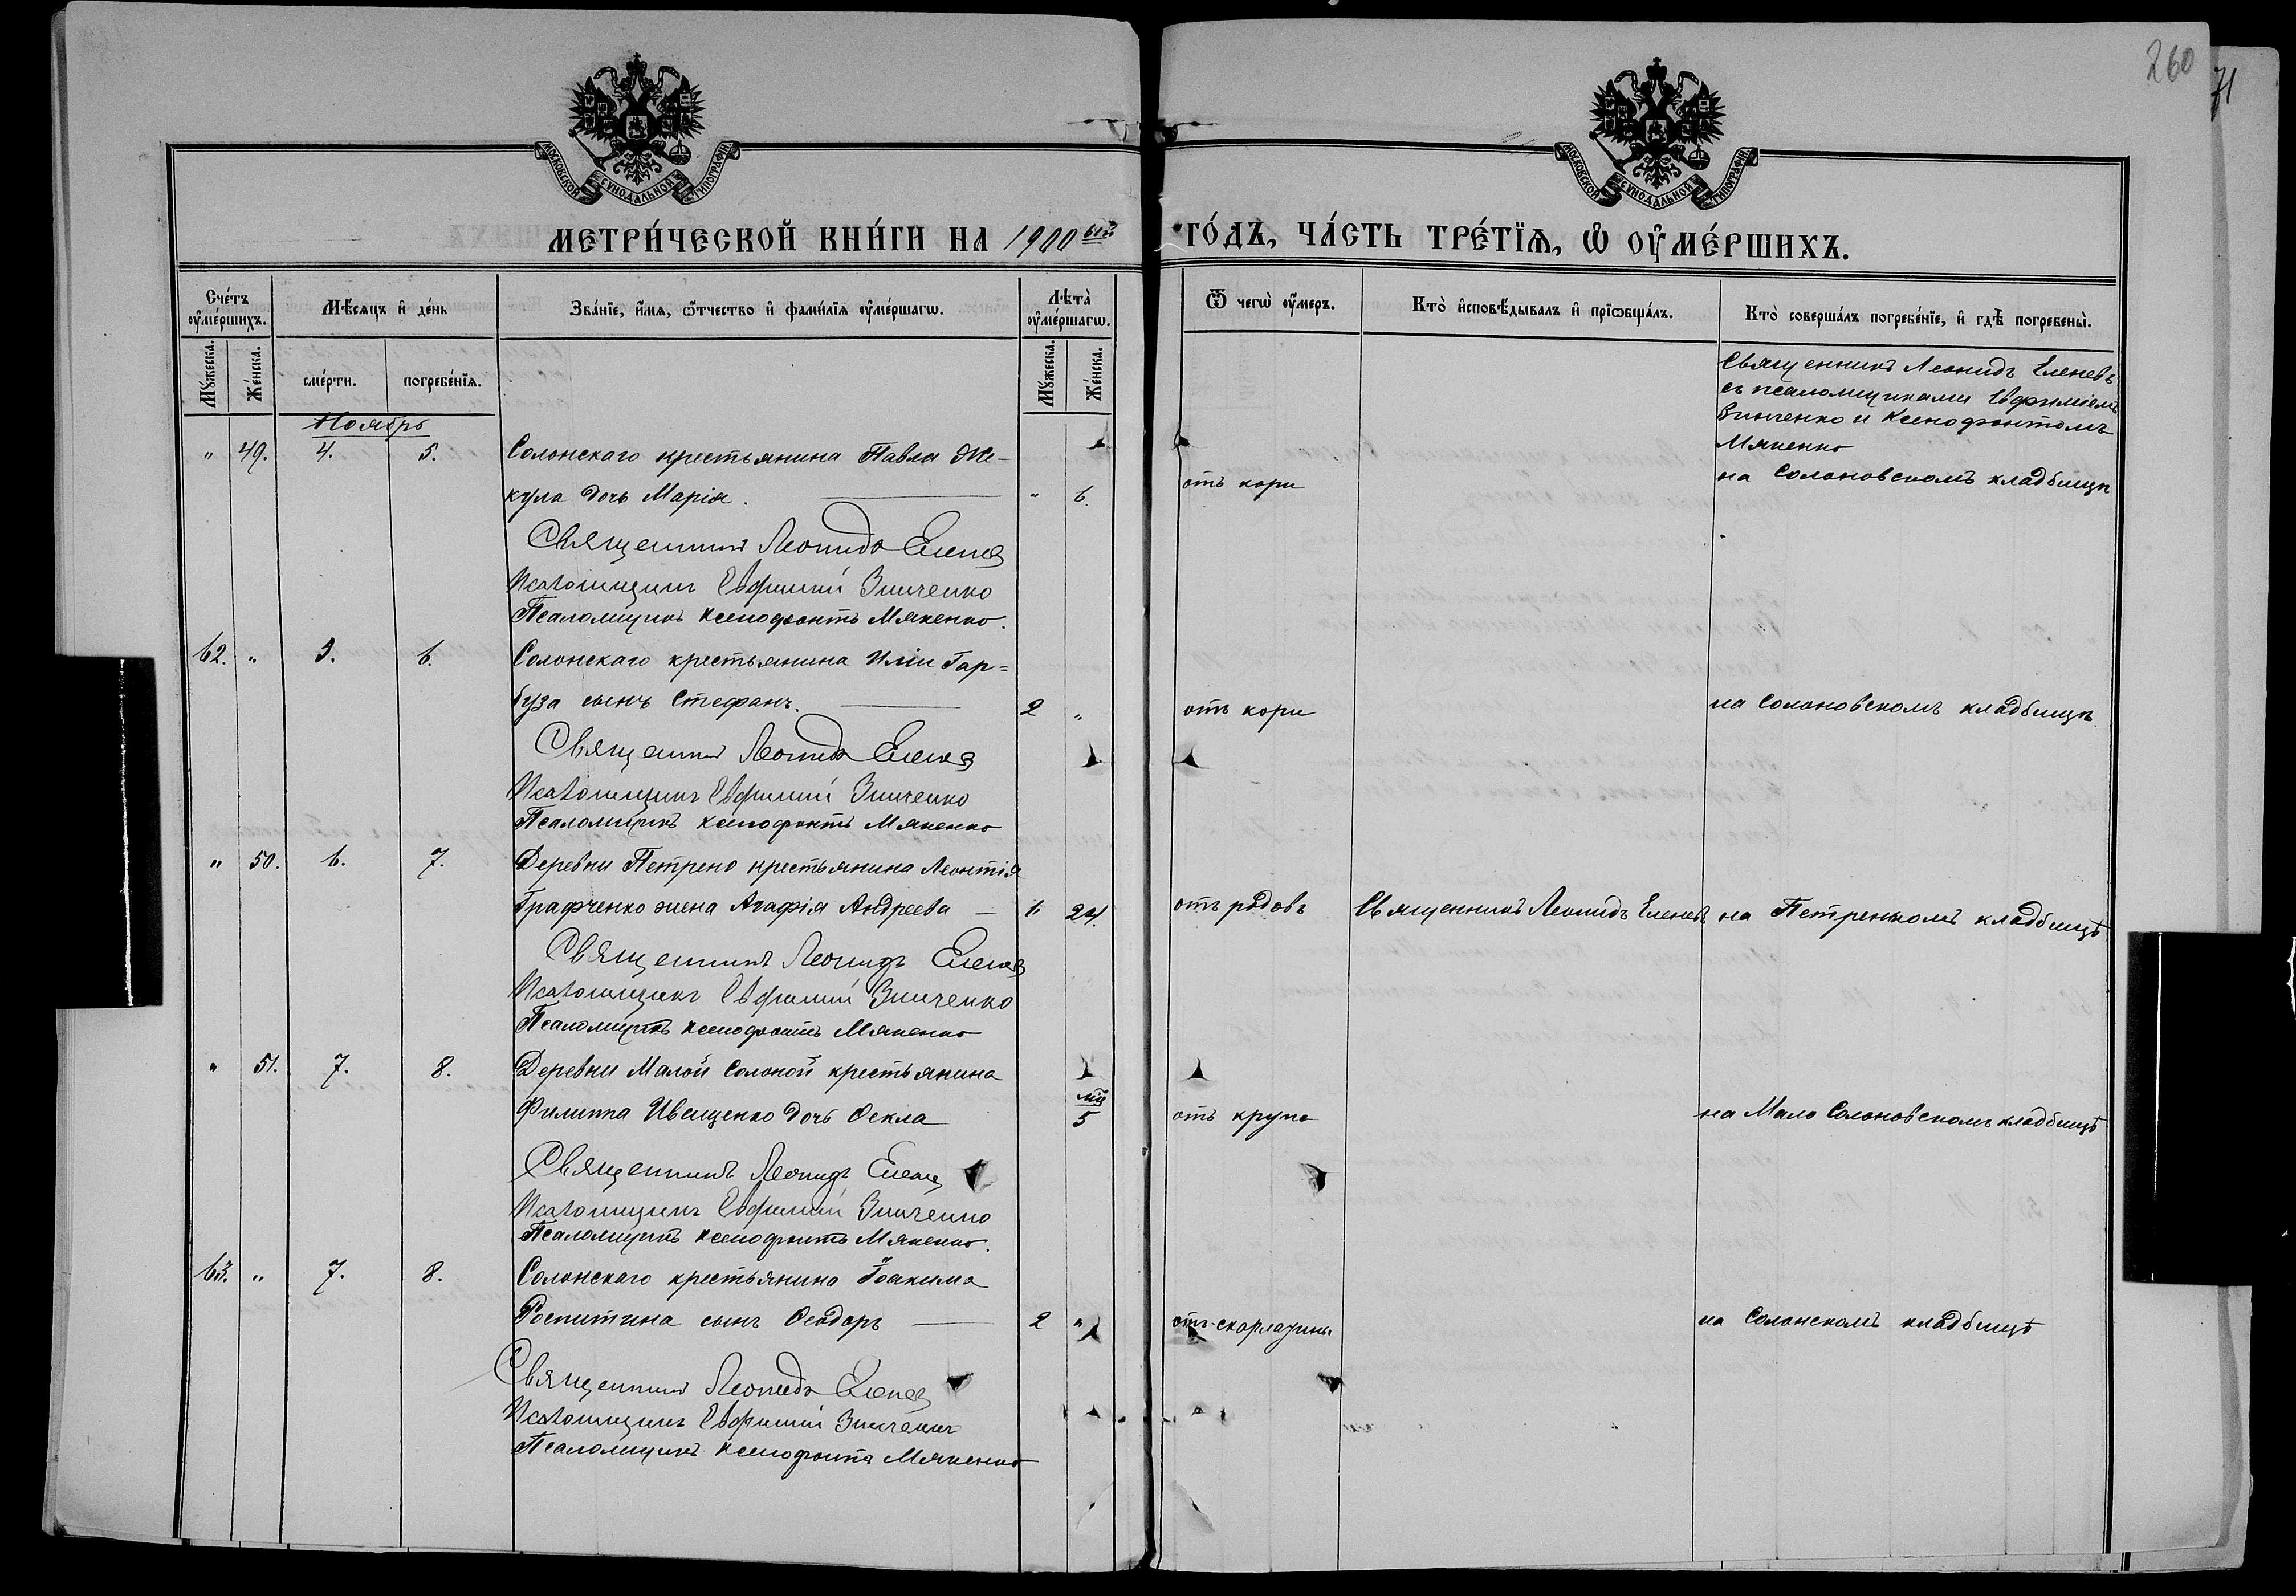 260
71
МОСКОВСКОЙ СѴНОДАЛЬНОЙ ТИПОГРАФІИ
МОСКОВСКОЙ СѴНОДАЛЬНОЙ ТИПОГРАФІИ
МЕТРИ́ЧЕСКОЙ КНИ́ГИ НА 1900 ый ГО́ДЪ, ЧА́СТЬ ТРЕ́ТЇѦ, Ѡ҆ ОУ҆МЕ́РШИХЪ.
Сче́тъ оу҆ме́ршихъ.
Мѣ́сяцъ и҆ де́нь
Зва́нїе, и҆́мѧ, ѻ҆́тчество и҆ фами́лїѧ оу҆ме́ршагѡ.
Лѣта̀ оу҆ме́ршагѡ.
Ѿ чегѡ̀ оу҆́меръ.
Кто̀ и҆сповѣ́дывалъ и҆ прїѡбща́лъ.
Кто̀ соверша́лъ погребе́нїе, и҆ гдѣ̀ погребены̀.
Мꙋ́жеска.
Же́нска.
сме́рти.
погребе́нїѧ.
Мꙋ́жеска.
Же́нска.
Священникъ Леонидъ Еленевъ
съ псаломщиками Евфиміемъ
Зинченко и Ксенофонтомъ
Мякенко
Ноябрь
" 49. 4. 5. Солонскаго крестьянина Павла Же-
кула дочь Марія. " 6. отъ кори на Солоновскомъ кладбищѣ
Священникъ Леонидъ Еленев
Псаломщикъ Евфимій Зинченко
Псаломщикъ Ксенофонтъ Мякенко.
62. " 5. 6. Солонскаго крестьянина Иліи Гар=
буза сынъ Стефанъ. 2 " отъ кори на Солоновскомъ кладбищѣ
Священникъ Леонидъ Еленев
Псаломщикъ Евфимій Зинченко
Псаломщикъ Ксенофонтъ Мякенко
" 50. 6. 7. Деревни Петрено крестьянина Леонтія
Графченко жена Агафія Андреева " 24. отъ родовъ Священникъ Леонидъ Еленевъ на Петренскомъ кладбищѣ
Священникъ Леонидъ Еленев
Псаломщикъ Евфимій Зинченко
Псаломщикъ Ксенофонтъ Мякенко
" 51. 7. 8. Деревни Малой Солоной крестьянина
Филиппа Иващенко дочь Ѳекла мѣ 5 отъ крупа на Мало Солоновскомъ кладбищѣ
Священникъ Леонидъ Еленев
Псаломщикъ Евфимій Зинченко
Псаломщикъ Ксенофонтъ Мякенко.
63. " 7. 8. Солонскаго крестьянина Іоакима
сынъ Ѳеодоръ 2 " отъ скарлатины на Солонскомъ кладбищѣ
Священникъ Леонидъ Еленев
Псаломщикъ Евфимій Зинченко
Псаломщикъ Ксенофонтъ Мякенко